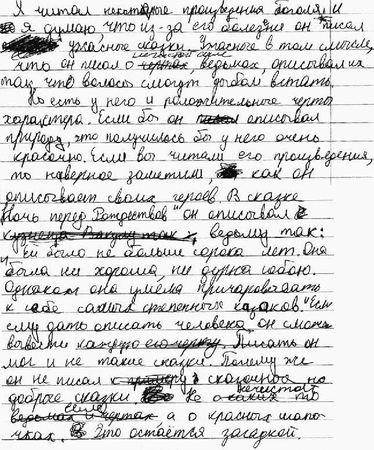 Я читал некоторые произведения Гоголя. И
я думаю что из-за его болезни он писал
ужасные сказки. Ужасные в том смысле,
что он писал о чертах, ведьмах, описывал их
так что волосы смогут дыбом встать.
Но есть у него и положительные черты
характера. Если бы он описывал
природу, это получилось бы у него очень
красочно. Если вы читали его произведения,
то наверное заметили как он
описывает своих героев. В сказке
"Ночь перед Рождеством" он описывал
кузнеца Вакулу так, ведьму так:
"Ей было не больше сорока лет. Она
была ни хороша, ни дурна собою.
Однако она умела причаровывать
к себе самых степенных казаков." Если
ему дать описать человека, он сможет
вывести каждую его черту. Писать он
мог и не такие сказки. Почему же
он не писал к примеру сказочные но
добрые сказки. Не о каких то
нечистой силе
ведьмах и чертах а о красных шапо-
чках. Это остаётся загадкой.